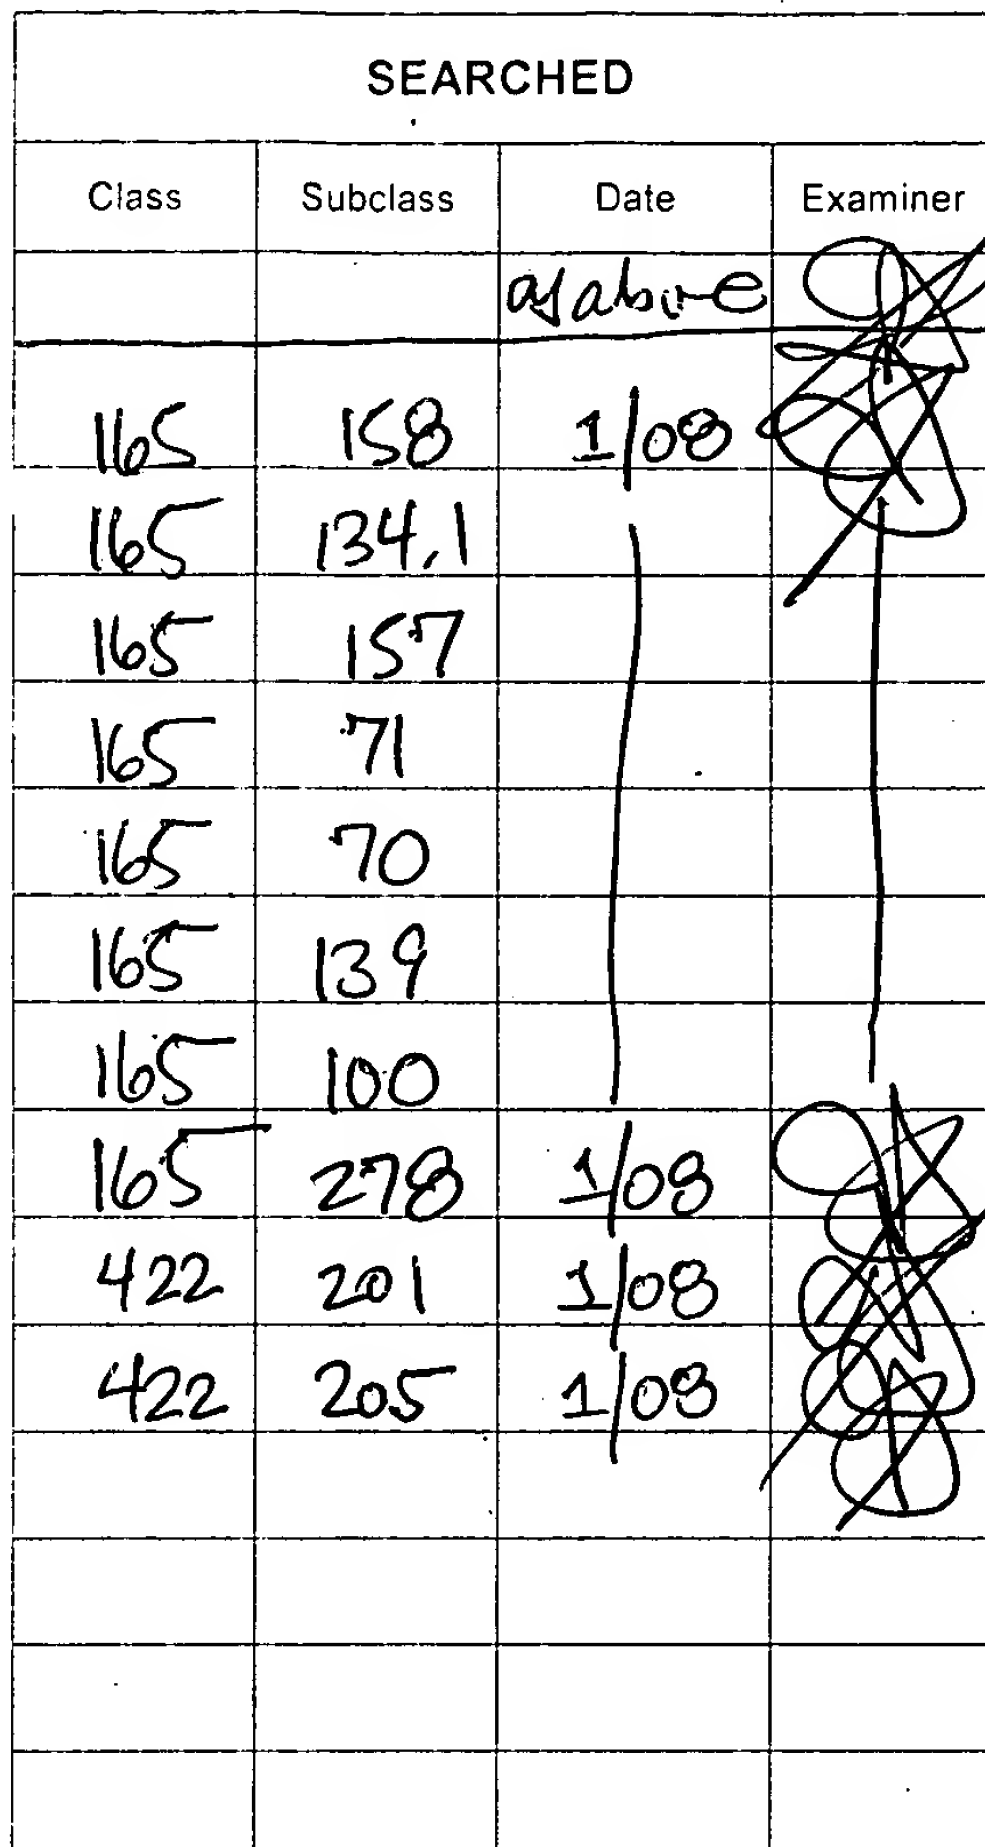 SEARCHED
Class Subclass Date Examiner
as above
165 158 1/08
165 134.1
165 157
165 71
165 70
165 139
165 100
165 278 1/08
422 201 1/08
422 205 1/08